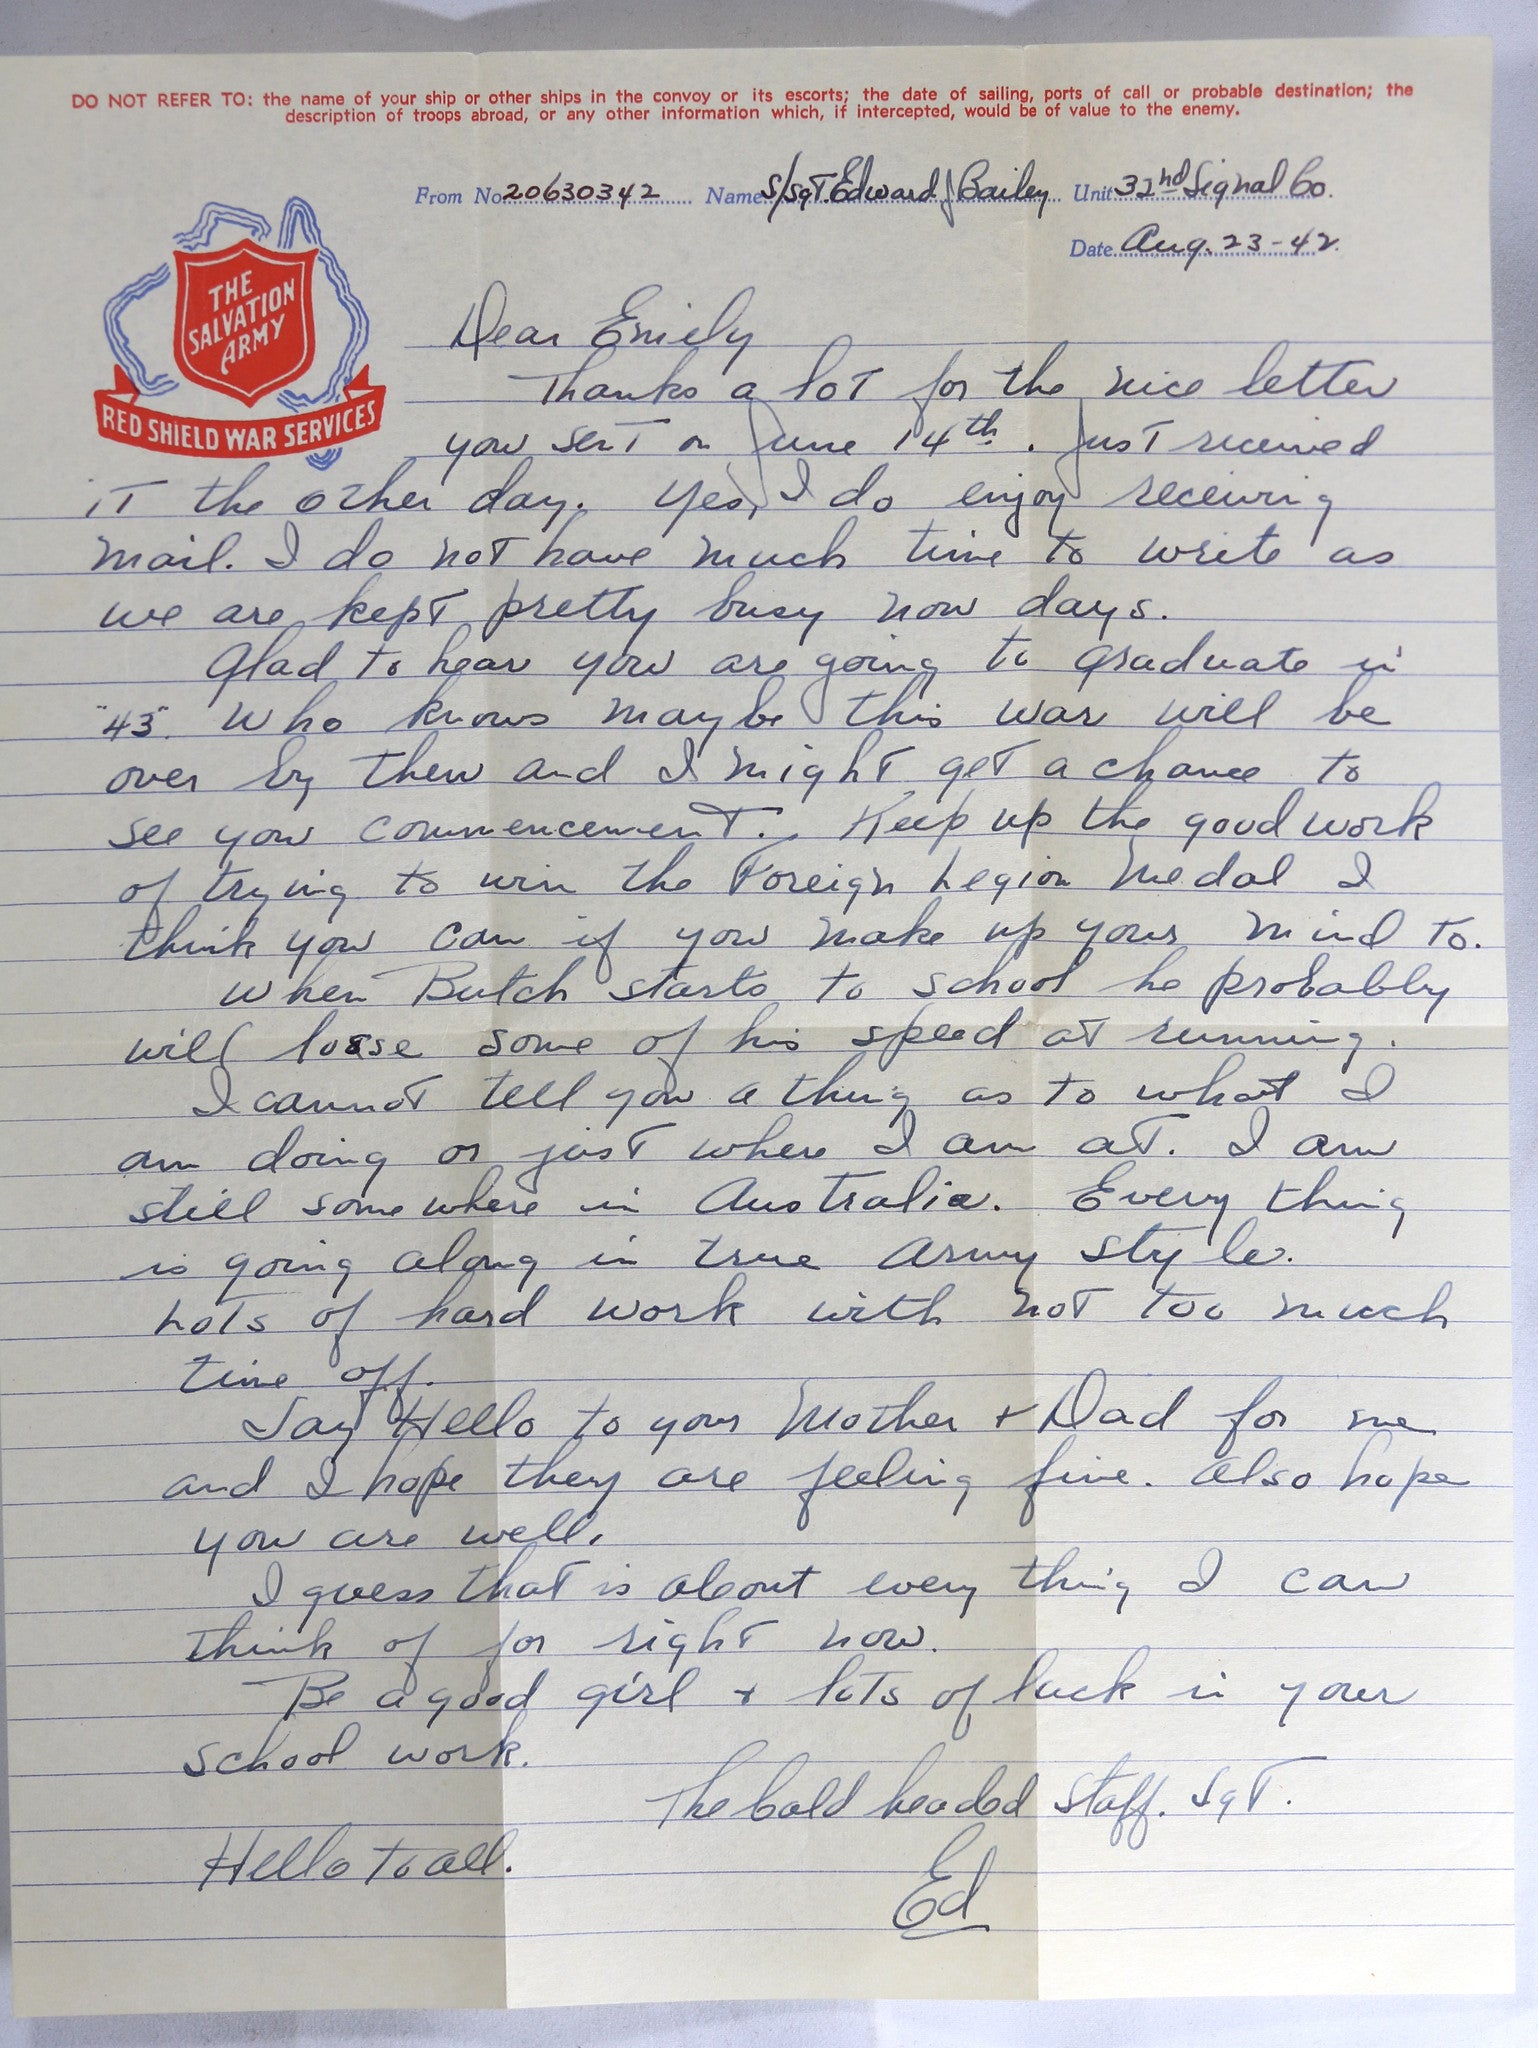 DO NOT REFER TO: the name of your ship or other ships in the convoy or its escorts; the date of sailing, ports of call or probable destination; the
description of troops abroad, or any other information which, if intercepted, would be of value to the enemy.
From No. 20630342 Name S/Sgt. Edward J Bailey Unit 32nd Signal Co.
Date Aug. 23-42
THE
SALVATION
ARMY
RED SHIELD WAR SERVICES
Dear Emiely
Thanks a lot for the nice letter
you sent on June 14th. Just received
it the other day. Yes, I do enjoy receiving
mail. I do not have much time to write as
we are kept pretty busy now days.
Glad to hear you are going to graduate in
"43". Who knows maybe this war will be
over by then and I might get a chance to
see your commencement. Keep up the good work
of trying to win the Foreign Legion Medal I
think you can if you make up your mind to.
When Butch starts to school he probably
will loose some of his speed at running.
I cannot tell you a thing as to what I
am doing or just where I am at. I am
still some where in Australia. Every thing
is going along in true Army style.
Lots of hard work with not too much
time off.
Say Hello to your Mother + Dad for me
and I hope they are feeling fine. Also hope
you are well.
I guess that is about every thing I can
think of for right now.
Be a good girl + lots of luck in your
school work.
The bald headed Staff. Sgt.
Hello to all.
Ed